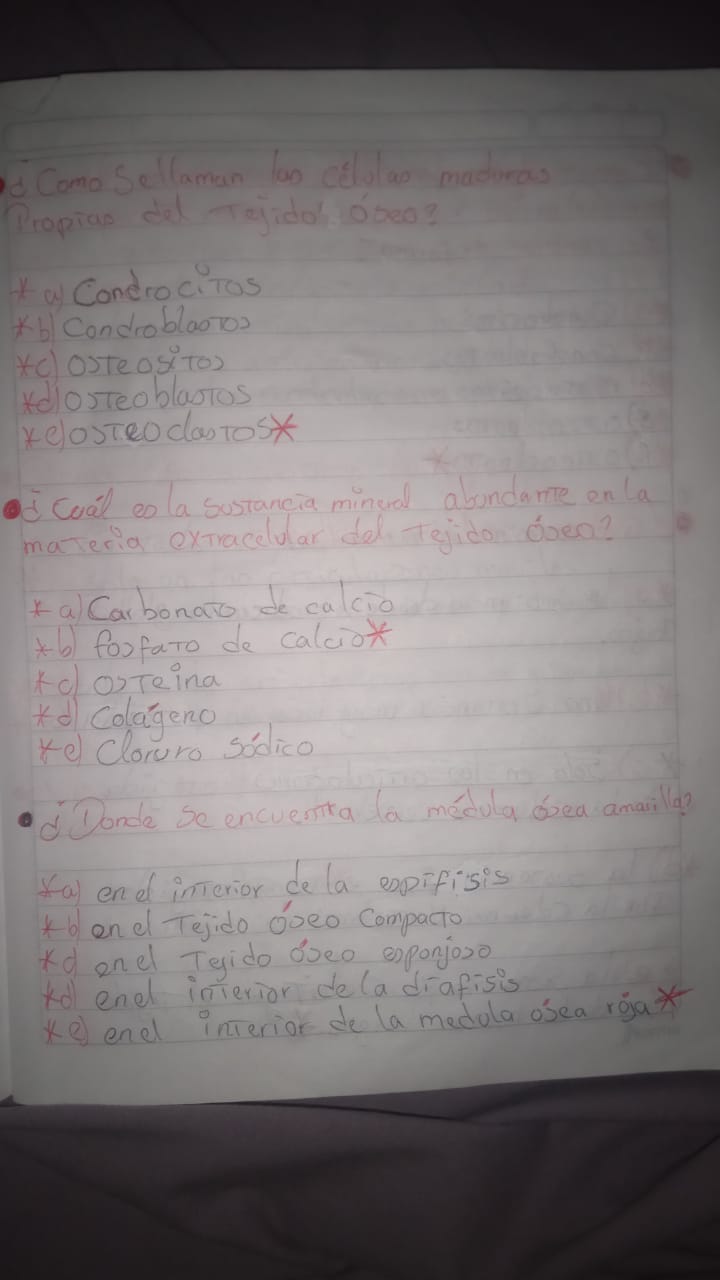 ¿Como Se llaman las células maduras
Propias del Tejido óseo?
* a) Condrocitos
* b) Condroblastos
* c) osteositos
* d) osteoblastos
* e) osteoclastos *
¿Cuál es la sustancia mineral abundante en la
materia extracelular del Tejido óseo?
* a) Carbonato de calcio
* b) fosfato de calcio *
* c) osteina
* d) Colágeno
* e) Cloruro sódico
¿Donde se encuentra la médula ósea amarilla?
* a) en el interior de la espifisis
* b) en el Tejido óseo Compacto
* c) en el Tejido óseo esponjoso
* d) en el interior de la diafisis
* e) en el interior de la medola osea roja *